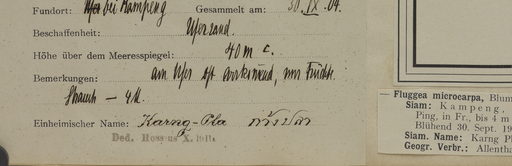 Fundort: Ufer bei Kampeng Gesammelt am: 30. IX. 04.
Beschaffenheit: Uferrand.
Höhe über dem Meeresspiegel: 40 m c.
Bemerkungen: am Ufer oft, nur Früchte
Strauch – 4 M.
Einheimischer Name: Karng-Pla ก้างปลา
Ded. Hosseus X.
Fluggea microcarpa, Blum
Siam: Kampeng,
Ping, in Fr., bis 4 m
Blühend 30. Sept. 19
Siam. Name: Karng Pl
Geogr. Verbr.: Allentha